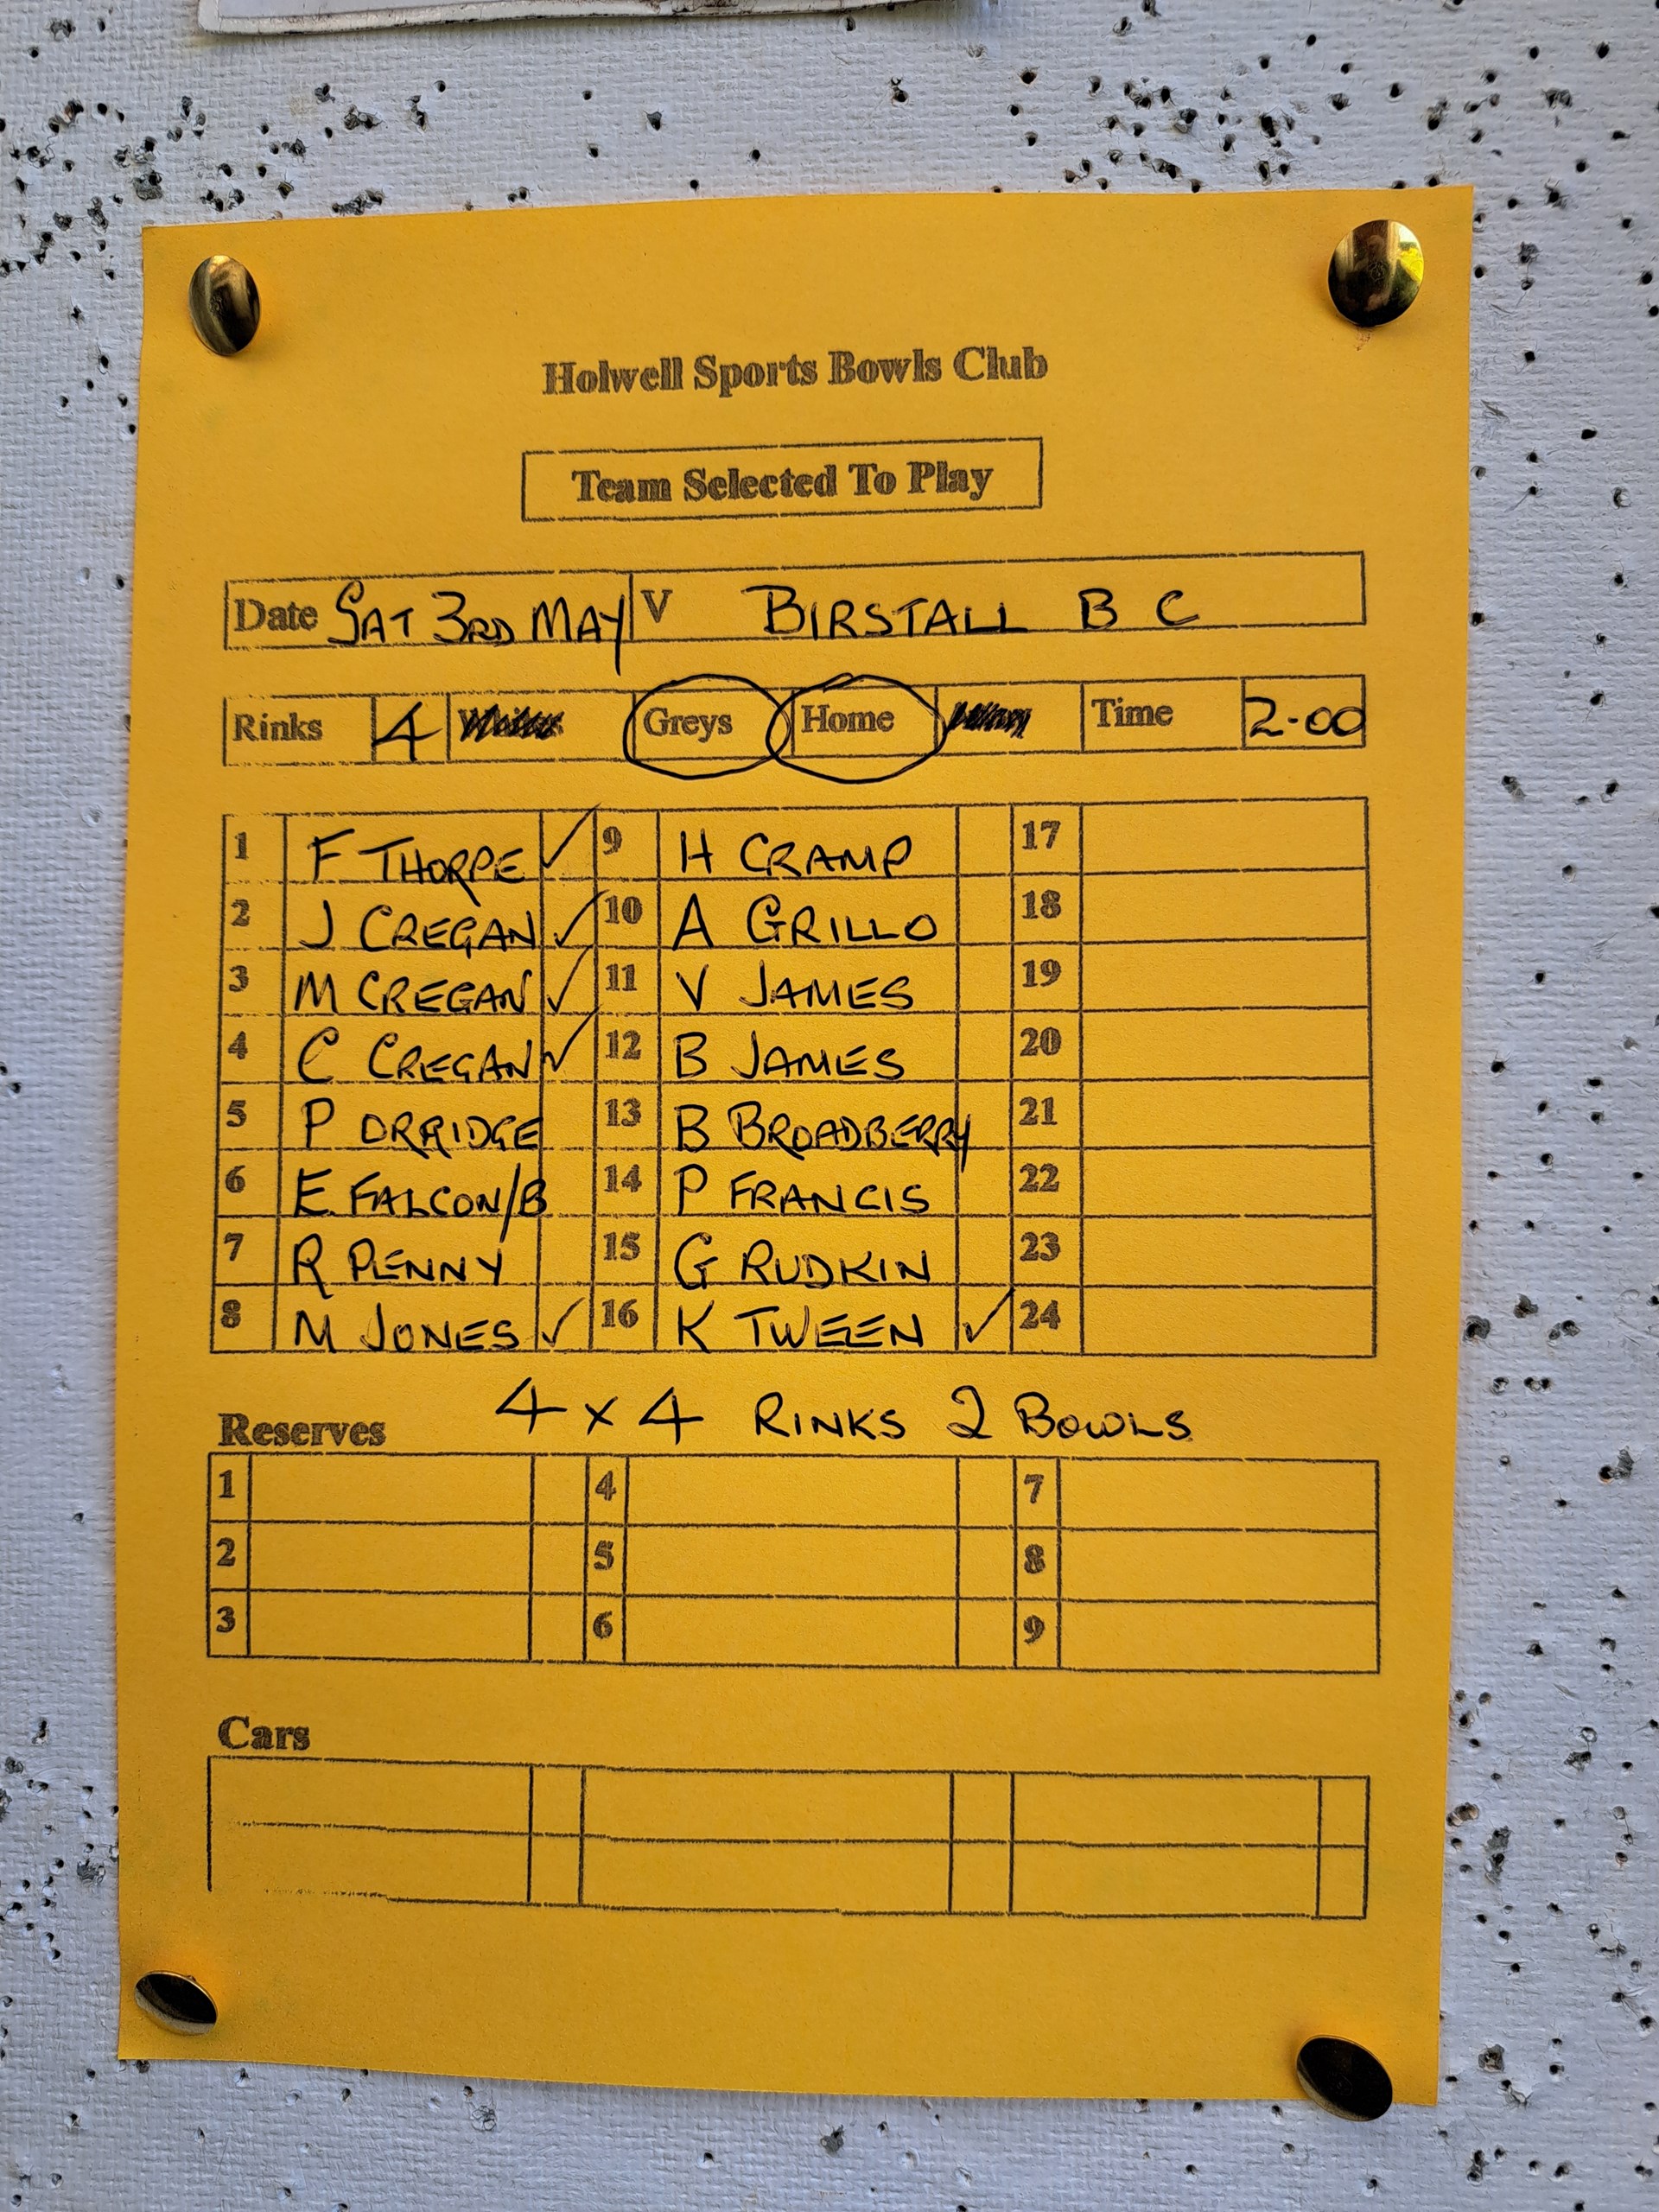 Holwell Sports Bowls Club
Team Selected To Play
Date SAT 3RD MAY V BIRSTALL B C
Rinks 4 Greys Home Time 2-00
1 F THORPE ✓ 9 H CRAMP 17
2 J CREGAN ✓ 10 A GRILLO 18
3 M CREGAN ✓ 11 V JAMES 19
4 C CREGAN ✓ 12 B JAMES 20
5 P ORRIDGE 13 B BROADBERRY 21
6 E FALCON/B 14 P FRANCIS 22
7 R PENNY 15 G RUDKIN 23
8 M JONES ✓ 16 K TWEEN ✓ 24
4 x 4 RINKS 2 BOWLS
Reserves
1 4 7
2 5 8
3 6 9
Cars